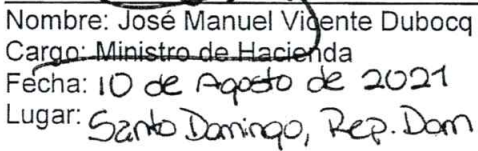 Nombre: José Manuel Vicente Dubocq
Cargo: Ministro de Hacienda
Fecha: 10 de Agosto de 2021
Lugar: Santo Domingo, Rep. Dom